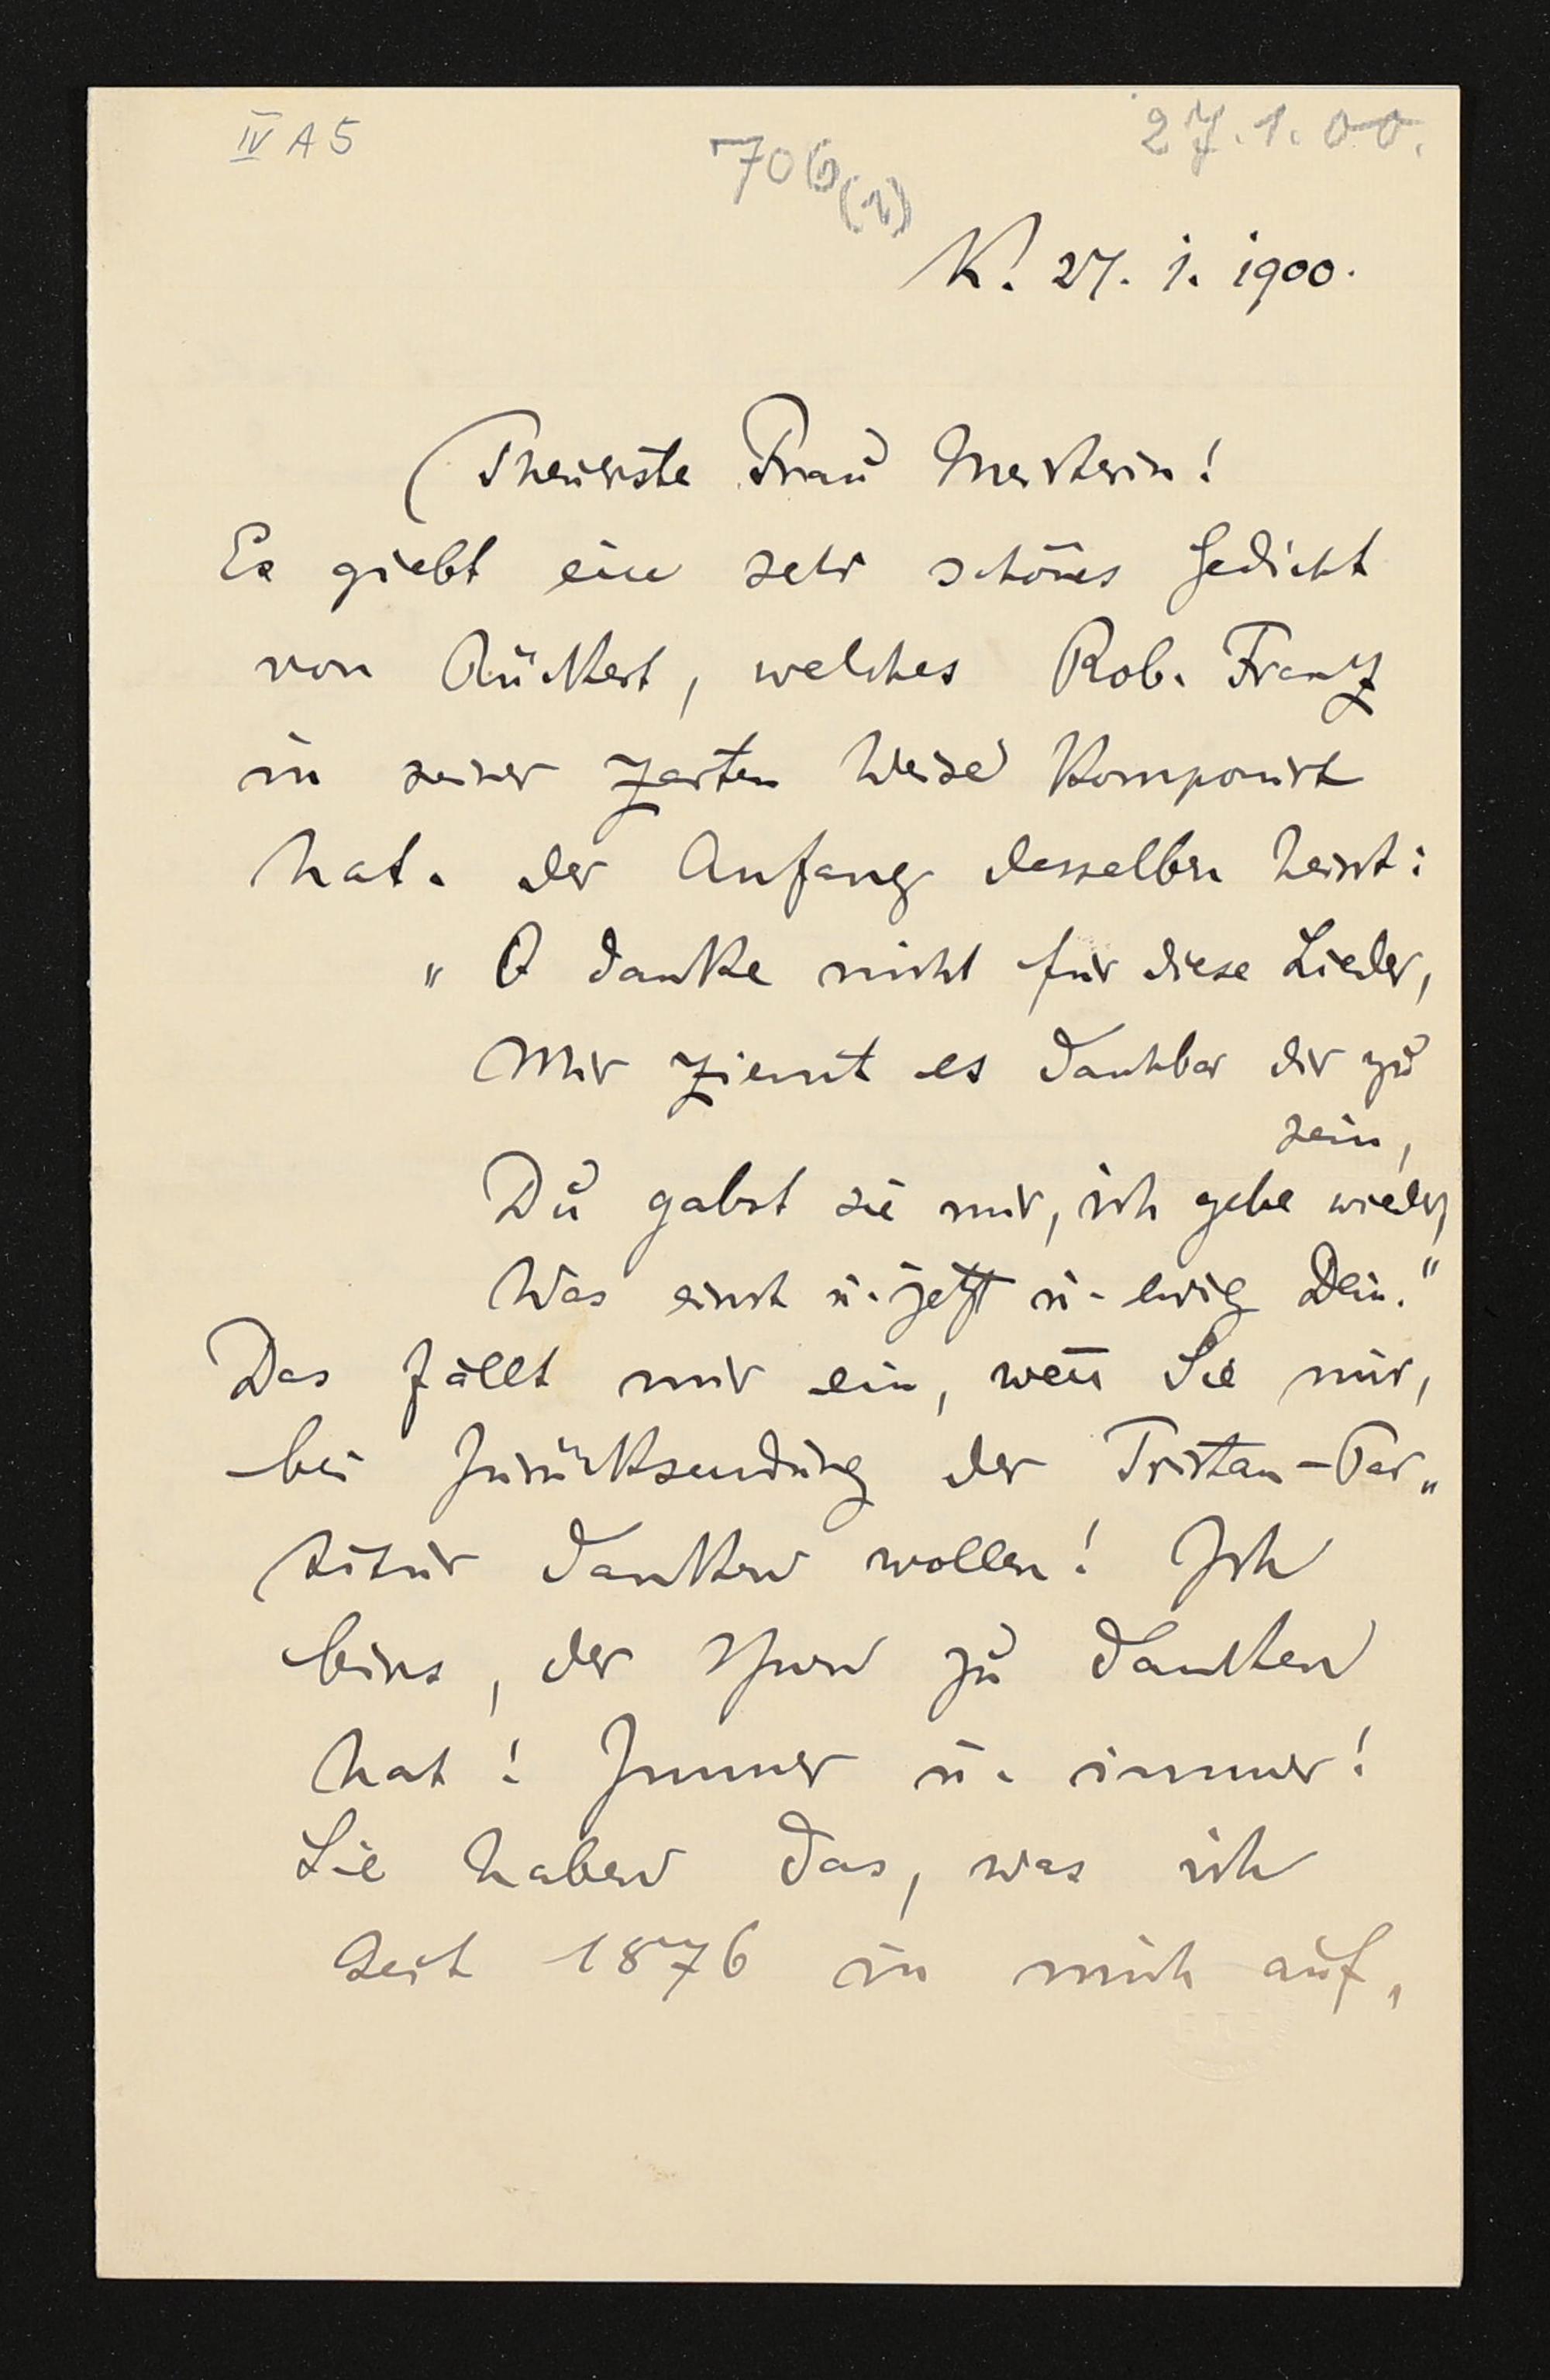 IV A 5
706(1)
27.1.00.
K. 27. 1. 1900.
Theuerste Frau Meisterin!
Es giebt ein sehr schönes Gedicht
von Rückert, welches Rob. Franz
in seiner zarten Weise komponirt
hat. Der Anfang desselben heisst:
„O danke nicht für diese Lieder,
Mir ziemt es dankbar dir zu
sein,
Du gabst sie mir, ich gebe wieder,
Was einst u. jetzt u. ewig Dein."
Das fällt mir ein, wen̄ Sie mir,
bei Zurücksendung der Tristan-Par„
titur danken wollen! Ich
bins, der Ihnen zu danken
hat! Immer u. immer!
Sie haben das, was ich
seit 1876 in mich auf„